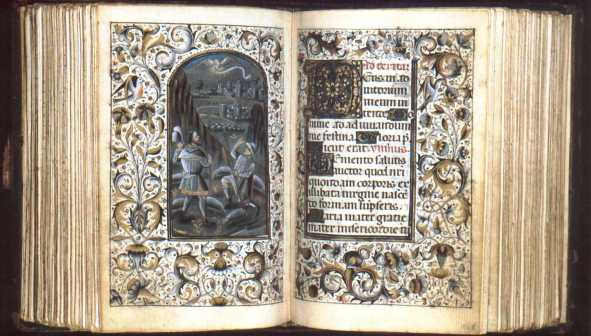 Ad tertiā
Deus in ad
iutorium
meum in
tende
mine ad adiuuandum
me festina. Gloria p̄
Sicut erat. ymnus
Memento salutis
auctor quod nri
quondam corporis ex
illibata uirgine nascē
do formam
Maria mater gratie
mater misericordie tu